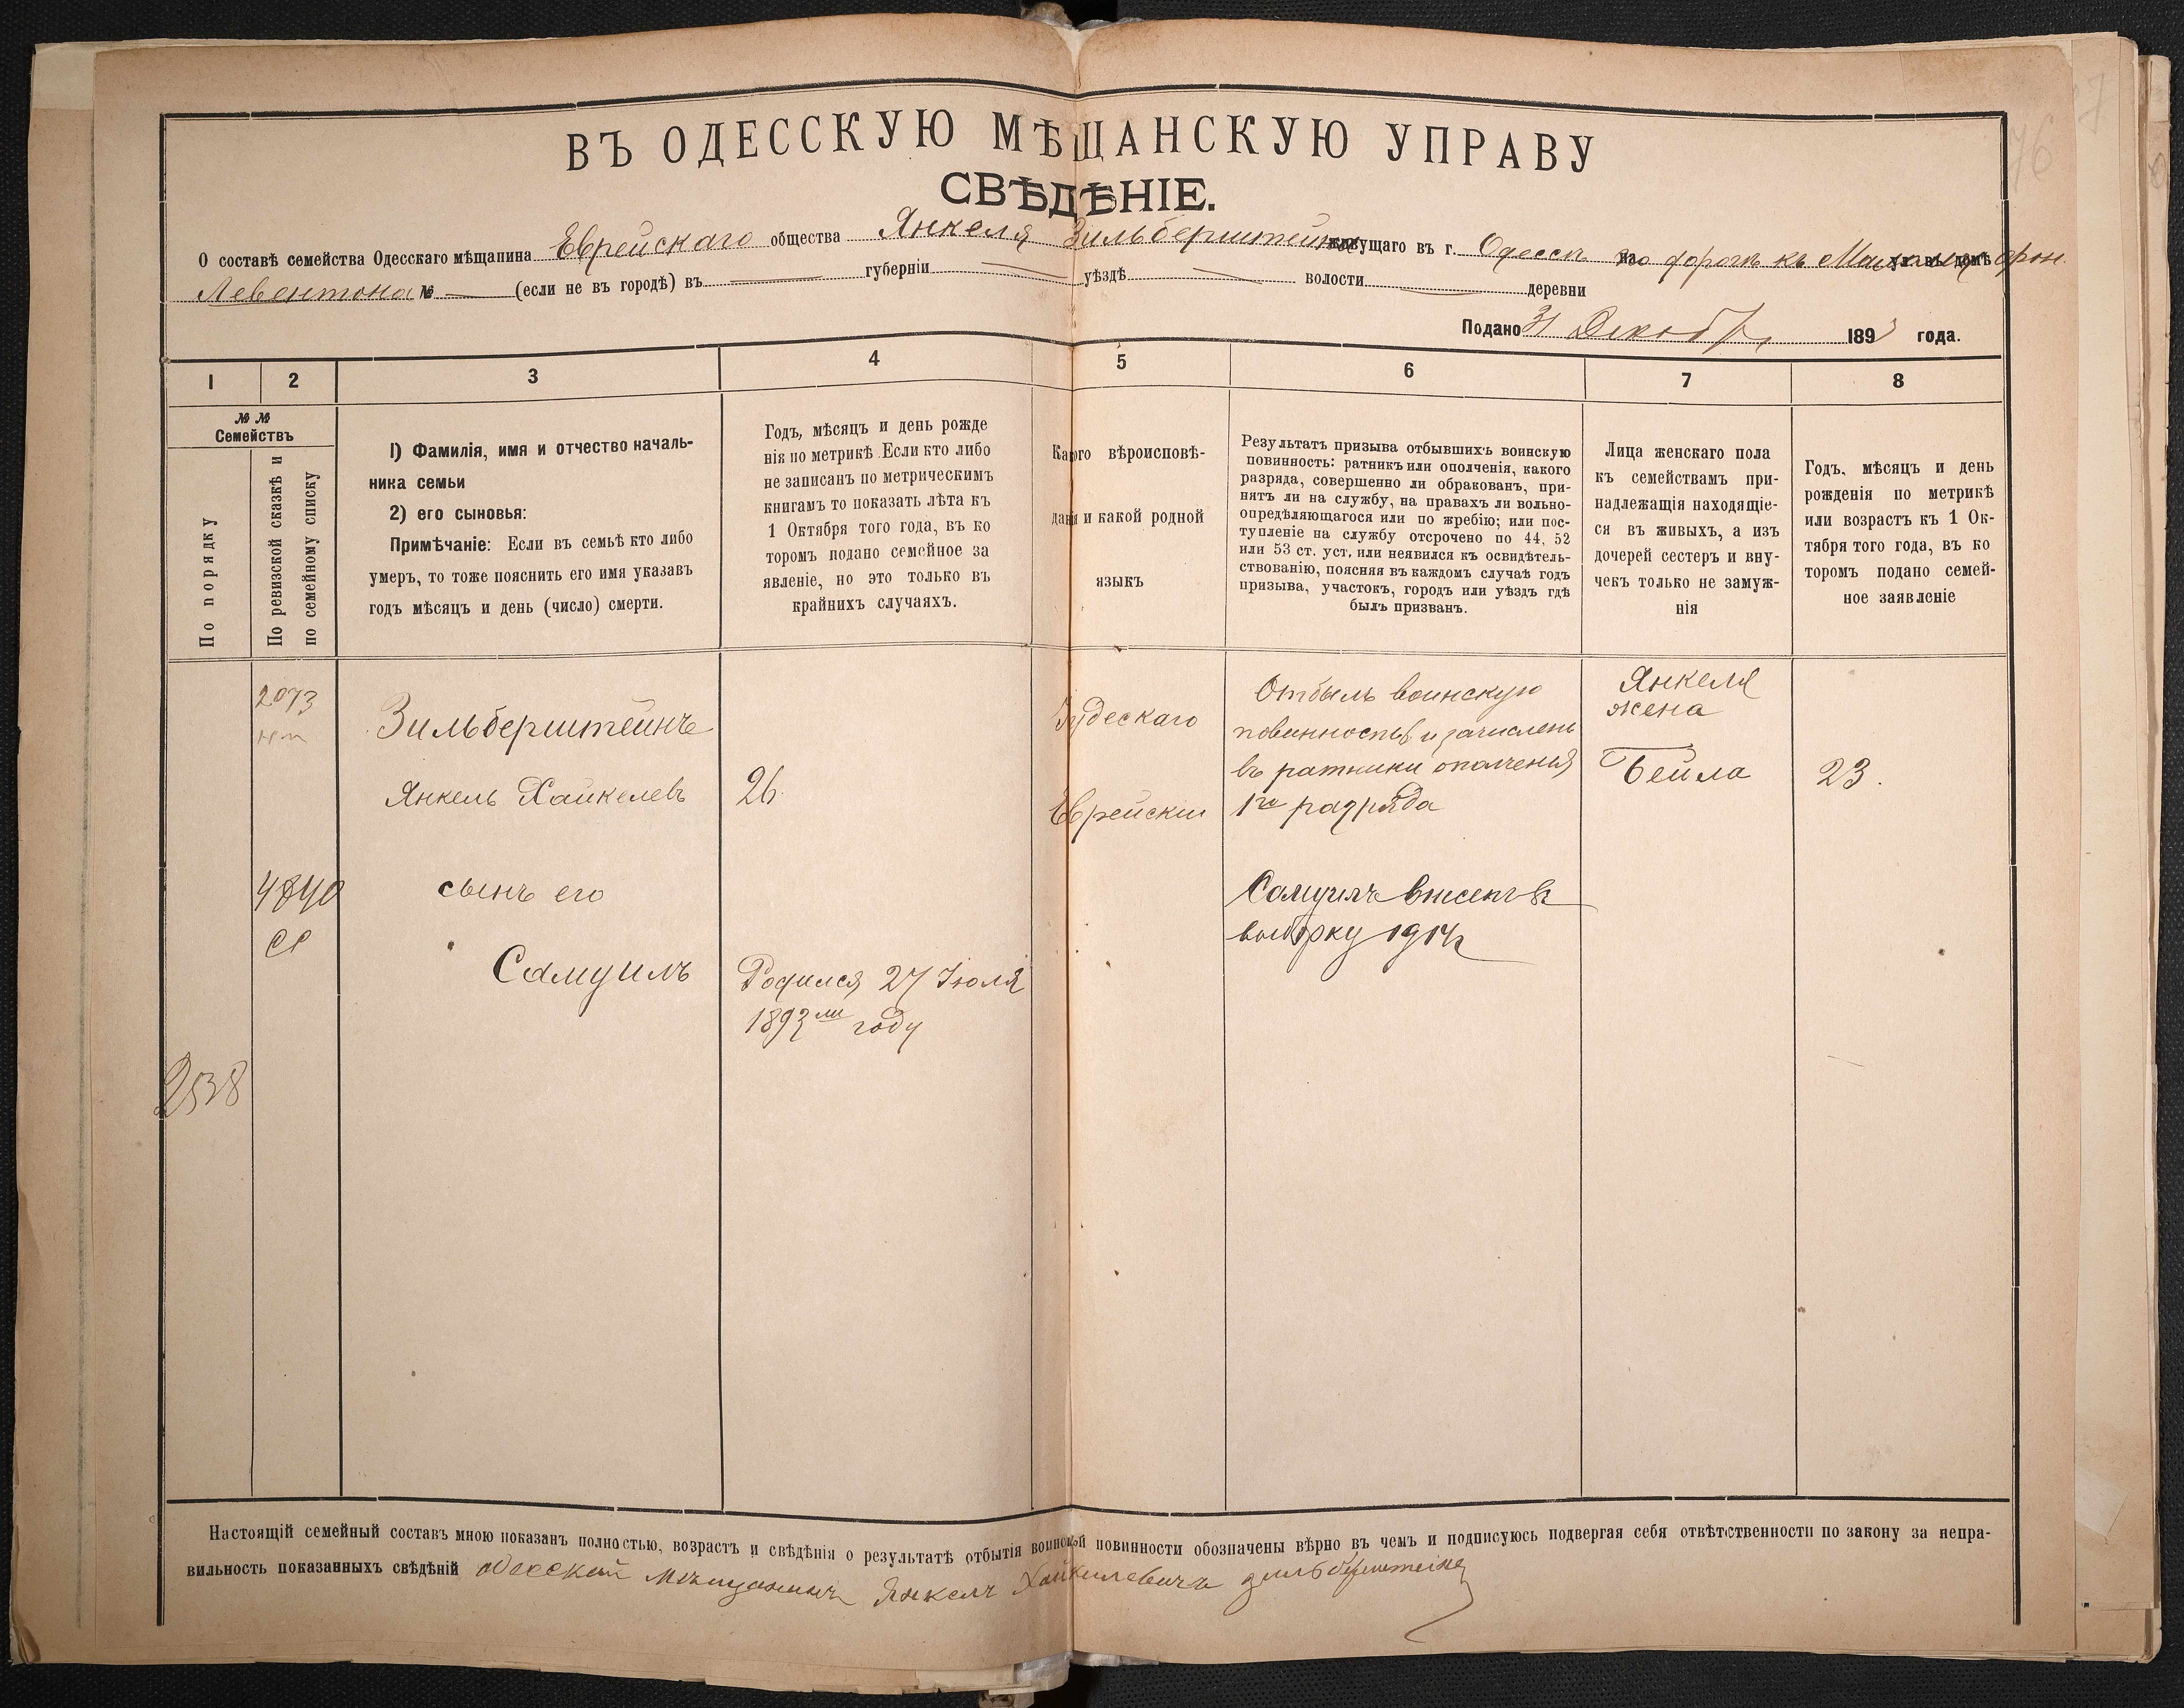 ВЪ ОДЕССКУЮ МѢЩАНСКУЮ УПРАВУ
СВѢДѢНІЕ.
О составѣ семейства Одесскаго мѣщанина Еврейскаго общества Янкеля Зильберштейна живущаго въ г. Одессѣ по дорогѣ къ ул. въ домѣ
Левентона № — (если не въ городѣ) въ — губерніи — уѣздѣ — волости — деревни
Подано 31 Декабр 1893 года.
1 2 3 4 5 6 7 8
№ №
Семействъ
По порядку
По ревизской сказкѣ и
по семейному списку
1) Фамилія, имя и отчество началь-
ника семьи
2) его сыновья:
Примѣчаніе: Если въ семьѣ кто либо
умеръ, то тоже пояснить его имя указавъ
годъ мѣсяцъ и день (число) смерти.
Годъ, мѣсяцъ и день рожде
нія по метрикѣ. Если кто либо
не записанъ по метрическимъ
книгамъ то показать лѣта къ
1 Октября того года, въ ко
торомъ подано семейное за
явленіе, но это только въ
крайнихъ случаяхъ.
Какого вѣроисповѣ-
данія и какой родной
языкъ
Результатъ призыва отбывшихъ воинскую
повинность: ратникъ или ополченія, какого
разряда, совершенно ли обракованъ, при-
нятъ ли на службу, на правахъ ли вольно-
опредѣляющагося или по жребію; или пос-
тупленіе на службу отсрочено по 44, 52
или 53 ст. уст. или неявился къ освидѣтель-
ствованію, поясняя въ каждомъ случаѣ годъ
призыва, участокъ, городъ или уѣздъ гдѣ
былъ призванъ.
Лица женскаго пола
къ семействамъ при-
надлежащія находящіе-
ся въ живыхъ, а изъ
дочерей сестеръ и вну-
чекъ только не замуж-
нія
Годъ, мѣсяцъ и день
рожденія по метрикѣ
или возрастъ къ 1 Ок-
тября того года, въ ко
торомъ подано семей-
ное заявленіе
2073
Зильберштейнъ
Янкель Хайкелевъ
26
Іудескаго
Еврейски
Отбылъ воинскую
повинность и зачисленъ
въ ратники ополченія
1го разряда
Янкеля
жена
Бейла
23.
4840
сынъ его
Самуилъ
Родился 27 Іюля
1893мъ году
Самуилъ внесенъ въ
выборку 1914
2538
Настоящій семейный составъ мною показанъ полностью, возрастъ и свѣдѣнія о результатѣ отбытія воинской повинности обозначены вѣрно въ чемъ и подписуюсь подвергая себя отвѣтственности по закону за непра-
вильность показанныхъ свѣдѣній одесский мѣщанинъ Янкелъ Хайкилевичъ зильберштейнъ